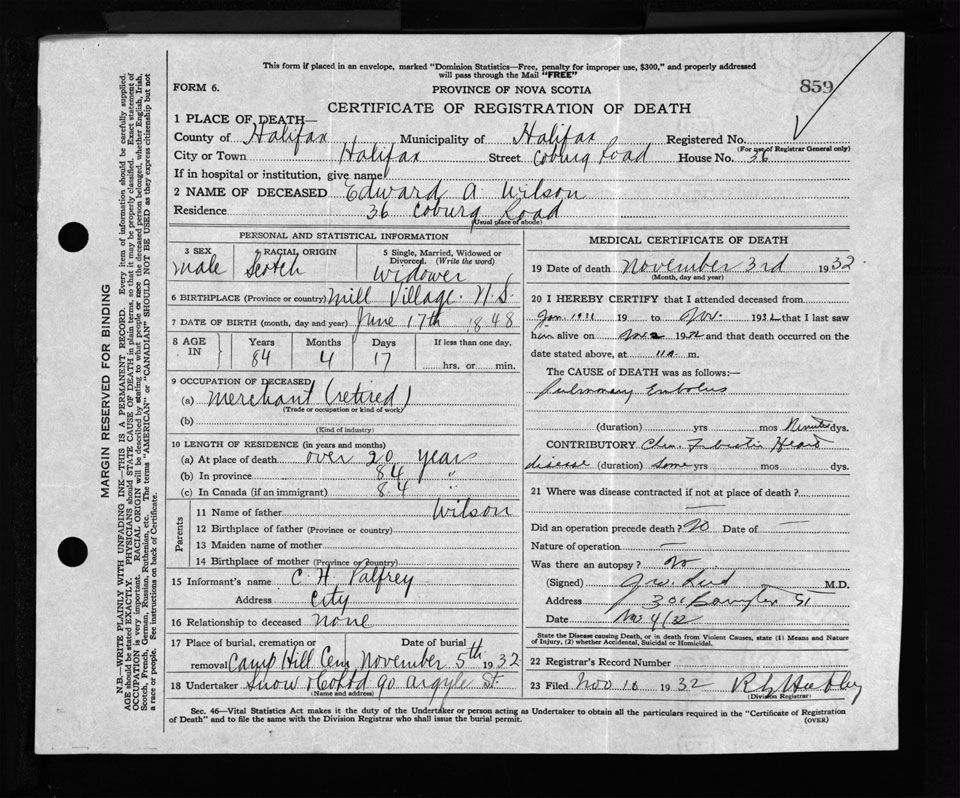 This form if placed in an envelope, marked "Dominion Statistics—Free, penalty for improper use, $300," and properly addressed
will pass through the Mail "FREE"
FORM 6.
PROVINCE OF NOVA SCOTIA
859
CERTIFICATE OF REGISTRATION OF DEATH
1 PLACE OF DEATH—
County of Halifax Municipality of Halifax Registered No.
(For use of Registrar General only)
City or Town Halifax Street Coburg Road House No. 36
If in hospital or institution, give name
2 NAME OF DECEASED Edward A. Wilson
Residence 36 Coburg Road
(Usual place of abode)
PERSONAL AND STATISTICAL INFORMATION
3 SEX male
4 RACIAL ORIGIN Scotch
5 Single, Married, Widowed or Divorced. (Write the word) widower
6 BIRTHPLACE (Province or country) Mill Village. N.S.
7 DATE OF BIRTH (month, day and year) June 17th 1848
8 AGE IN Years 84 Months 4 Days 17 If less than one day. hrs. or min.
9 OCCUPATION OF DECEASED
(a) Merchant (retired)
(Trade or occupation or kind of work)
(b)
(Kind of industry)
10 LENGTH OF RESIDENCE (in years and months)
(a) At place of death over 20 years
(b) In province 84 "
(c) In Canada (if an immigrant) 84 "
Parents
11 Name of father Wilson
12 Birthplace of father (Province or country)
13 Maiden name of mother
14 Birthplace of mother (Province or country)
15 Informant's name C. H. Palfrey
Address City
16 Relationship to deceased none
17 Place of burial, cremation or removal Camp Hill Cem Date of burial November 5th 1932
18 Undertaker Snow & Co Ltd 90 Argyle St.
(Name and address)
MEDICAL CERTIFICATE OF DEATH
19 Date of death November 3rd 1932
(Month, day and year)
20 I HEREBY CERTIFY that I attended deceased from
Jan 1931 19 to Nov. 1932 that I last saw
him alive on Nov 2 1932 and that death occurred on the
date stated above, at 11 a. m.
The CAUSE of DEATH was as follows:—
Pulmonary Embolus
(duration) yrs mos Minutes dys.
CONTRIBUTORY Heart
disease (duration) some yrs mos dys.
21 Where was disease contracted if not at place of death?
—
Did an operation precede death? No Date of —
Nature of operation —
Was there an autopsy? No
(Signed) M.D.
Address 301 St
Date Nov 4/32
State the Disease causing Death, or in death from Violent Causes, state (1) Means and Nature
of Injury, (2) whether Accidental, Suicidal or Homicidal.
22 Registrar's Record Number
23 Filed Nov 10 1932
(Division Registrar)
Sec. 46—Vital Statistics Act makes it the duty of the Undertaker or person acting as Undertaker to obtain all the particulars required in the "Certificate of Registration
of Death" and to file the same with the Division Registrar who shall issue the burial permit.
(OVER)
MARGIN RESERVED FOR BINDING
N.B.—WRITE PLAINLY WITH UNFADING INK—THIS IS A PERMANENT RECORD. Every item of information should be carefully supplied.
AGE should be stated EXACTLY. PHYSICIANS should STATE CAUSE OF DEATH in plain terms, so that it may be properly classified. Exact statement of
OCCUPATION is very important. RACIAL ORIGIN will be described by stating to what people or race the deceased person belonged, whether English, Irish,
Scotch, French, German, Russian, Ruthenian, etc. The terms "AMERICAN" or "CANADIAN" SHOULD NOT BE USED as they express citizenship but not
a race or people. See instructions on back of Certificate.